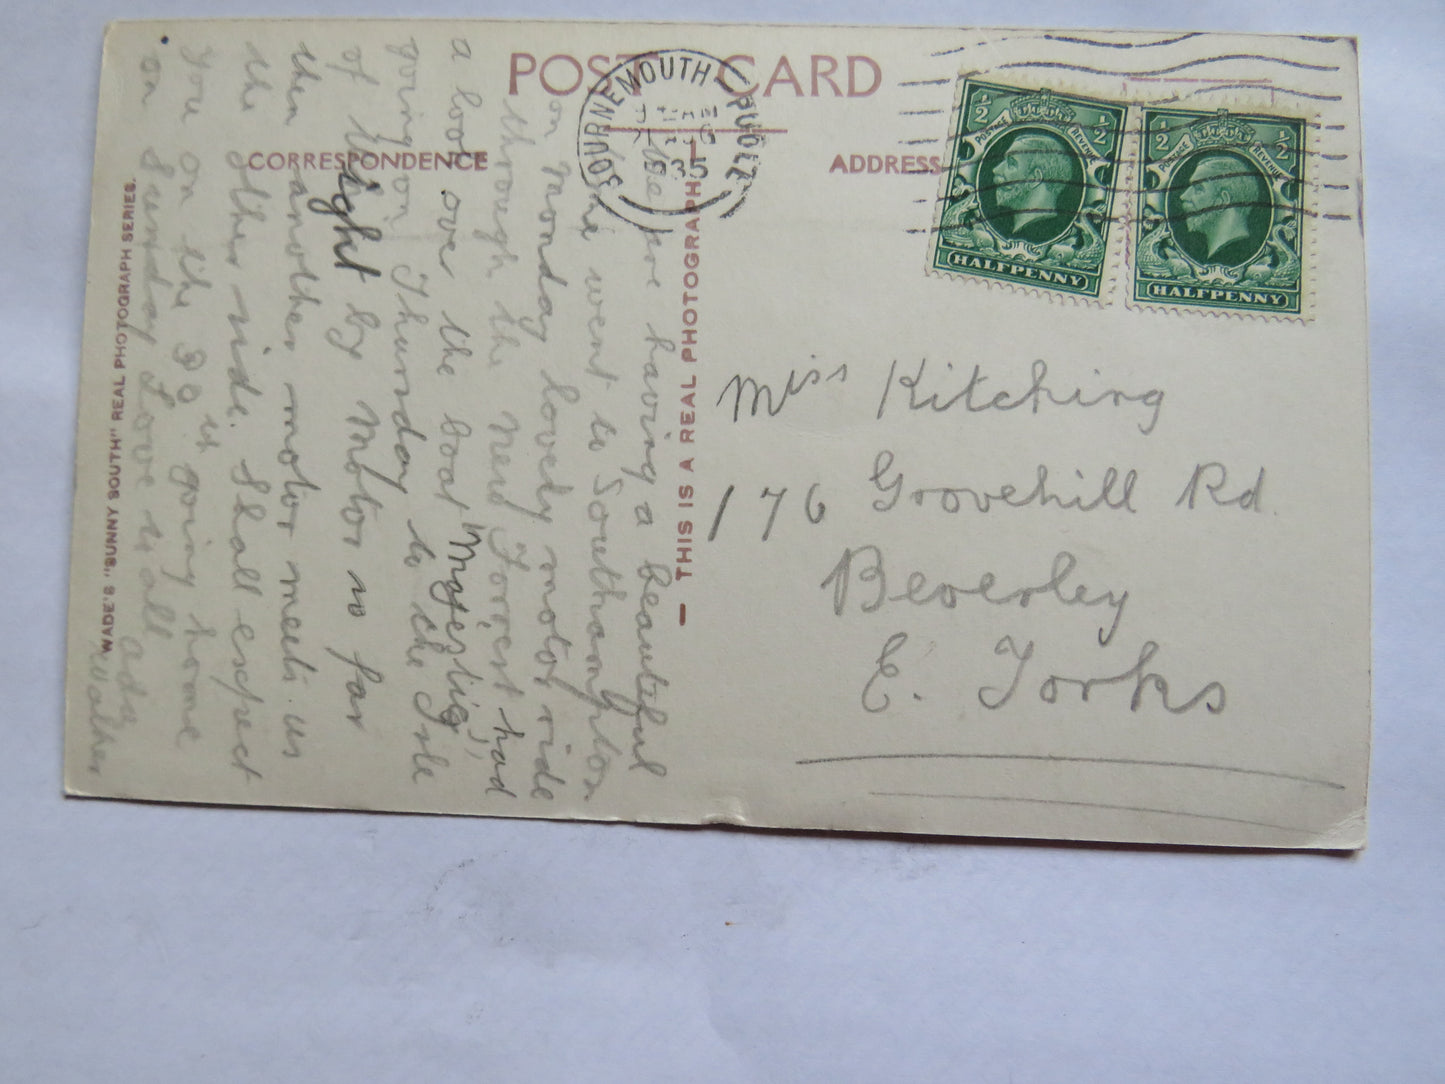 POST CARD
CORRESPONDENCE
ADDRESS
WADE'S "SUNNY SOUTH" REAL PHOTOGRAPH SERIES.
THIS IS A REAL PHOTOGRAPH
BOURNEMOUTH - POOLE
1935
½ POSTAGE REVENUE ½
HALFPENNY
½ POSTAGE REVENUE ½
HALFPENNY
We are having a beautiful
time went to Southampton
on Monday lovely motor ride
through the New Forrest had
a look over the boat "Majestic",
going on Thursday to the Isle
of Wight by Motor so far
then another motor meets us
the other side. Shall expect
you on the 30th going home
on Sunday Love to all
Ada
Walter
Miss Kitching
176 Grovehill Rd.
Beverley
E. Yorks